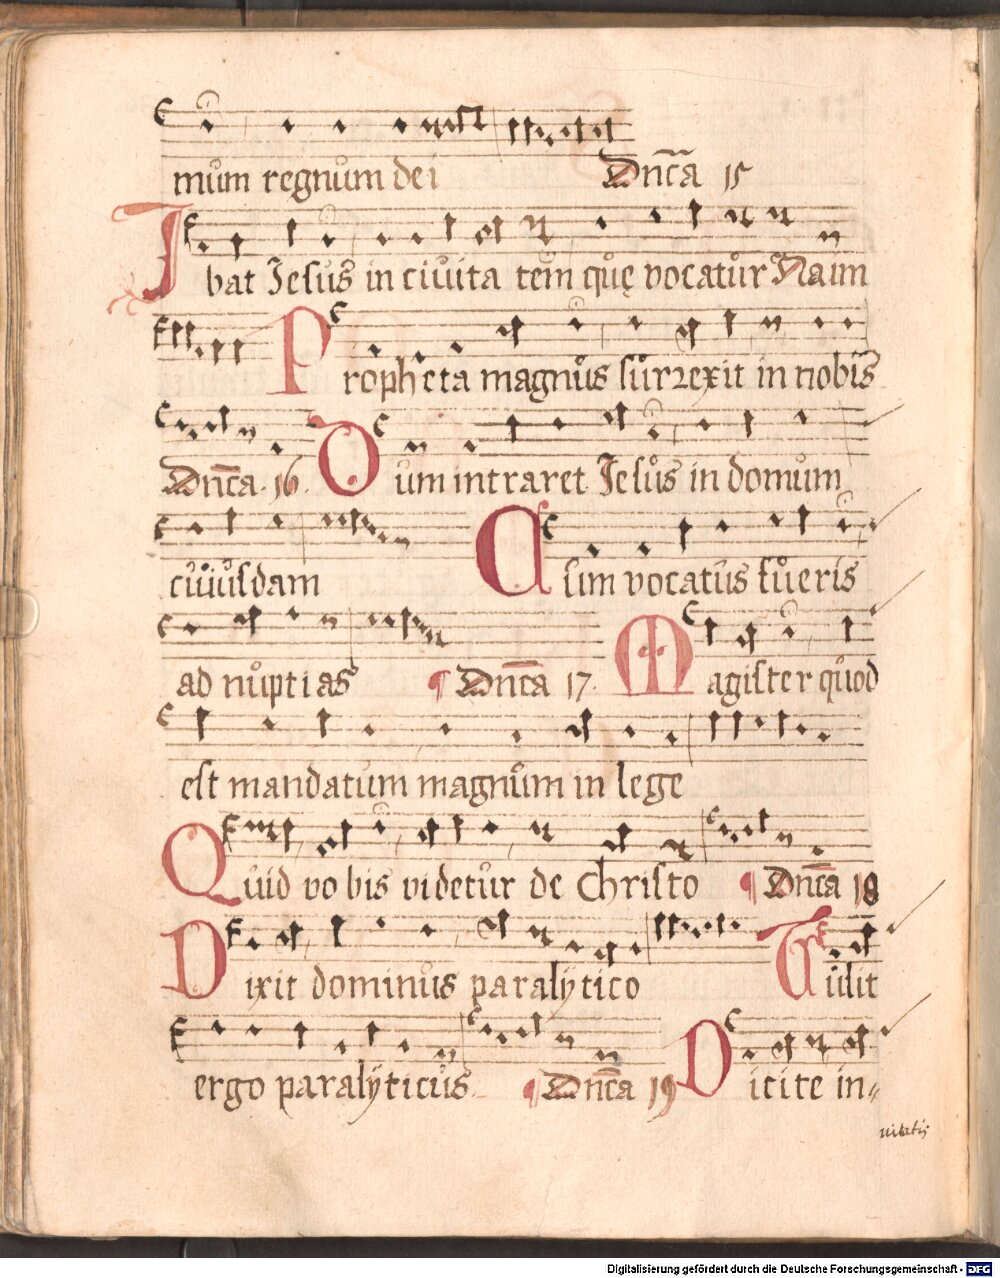 mům regnům dei Dn̄ca 15
Ibat Jesůs in ciůita tem quę vocatůr Naim
Propheta magnůs sůrrexit in nobis
Dn̄ca. 16. Cum intraret Jesůs in domům
cůiůsdam Cum vocatůs fůeris
ad nůptias ¶ Dn̄ca 17. Magister qůod
est mandatům magnům in lege
Quid vobis videtůr de Christo ¶ Dn̄ca 18
Dixit dominůs paralÿtico Tůlit
ergo paralÿticůs. ¶ Dn̄ca 19 Dicite in-
uitatis
Digitalisierung gefördert durch die Deutsche Forschungsgemeinschaft - DFG